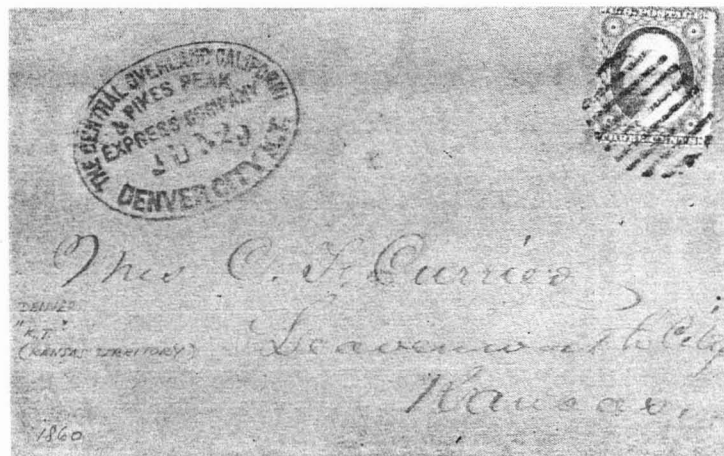 THE CENTRAL OVERLAND CALIFORNI
& PIKES PEAK
EXPRESS COMPANY
JUN 29
DENVER CITY, K.T.
C. F. Currier
Leavenworth City
Kansas.
DENVER
"K.T."
(KANSAS TERRITORY)
1860